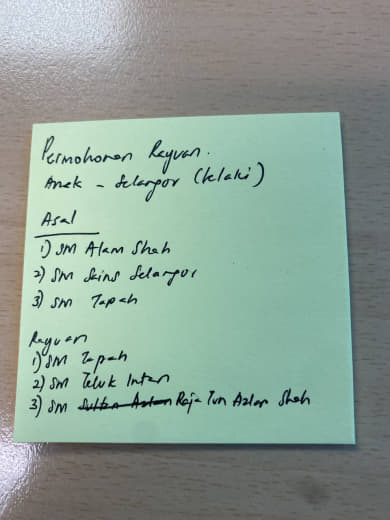 Permohonan Rayuan.
Anak - Selangor (lelaki)
Asal
1) SM Alam Shah
2) SM Sains Selangor
3) SM Tapah
Rayuan
1) SM Tapah
2) SM Teluk Intan
3) SM Sultan Azlan Raja Tun Azlan Shah